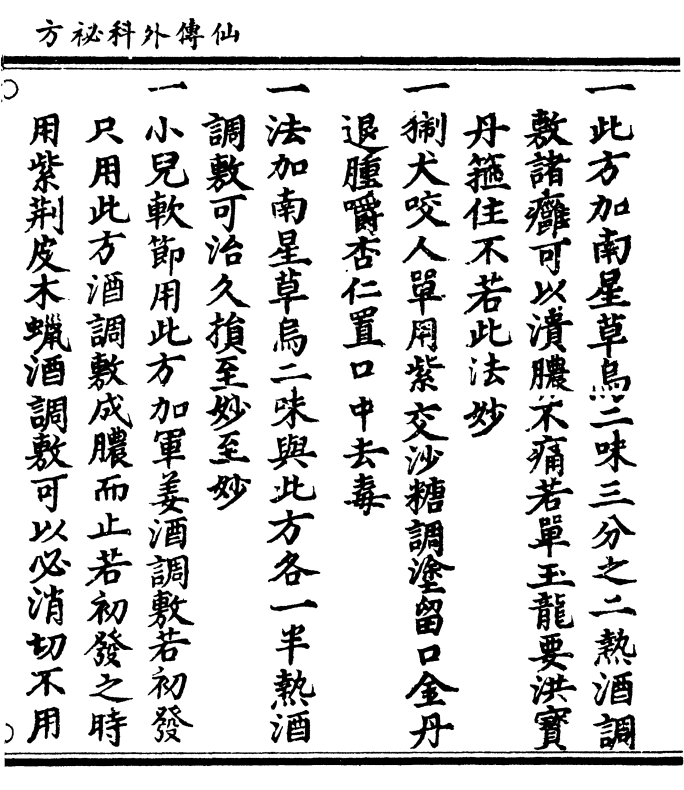 仙傳外科祕方
一此方加南星草烏二味三分之二熱酒調
敷諸癰可以潰膿不痛若單玉龍要洪寶
丹箍住不若此法妙
一猘犬咬人單用紫交沙糖調塗留口金丹
退腫嚼杏仁置口中去毒
一法加南星草烏二味與此方各一半熱酒
調敷可治久損至妙至妙
一小兒軟節用此方加軍姜酒調敷若初發
只用此方酒調敷成膿而止若初發之時
用紫荆皮木蠟酒調敷可以必消切不用